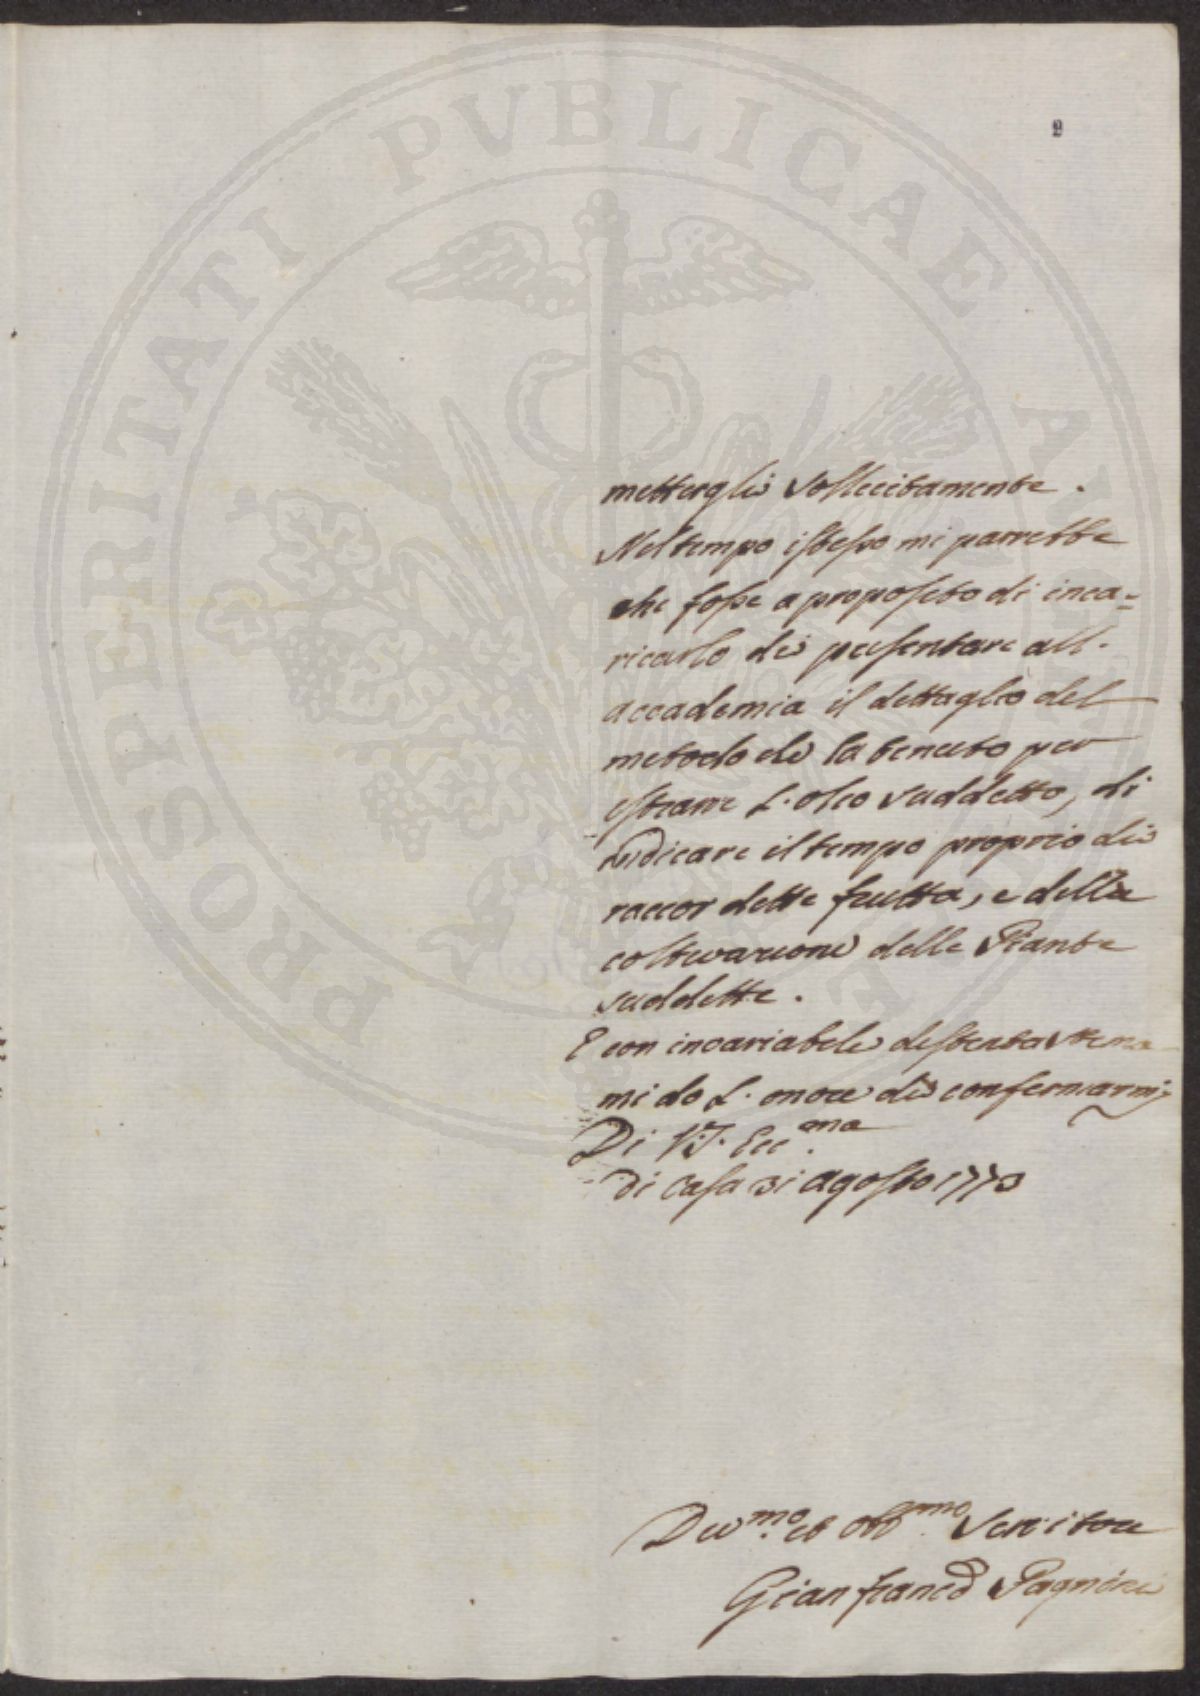 PROSPERITATI PVBLICAE AVGENDAE
2
mettergli sollecitamente.
Nel tempo istesso mi parrebbe
che fosse a proposito di inca=
ricarlo di presentare all.
accademia il dettaglio del
metodo da la tenuto per
estrarre L'olio suddetto, di
indicare il tempo proprio di
raccor dette frutta, e della
coltivazione delle Piante
suddette.
E con invariabile distinta stima
mi do L'onore di confermarmi
Di V.S. Ecc.ma
Di Casa 31 agosto 1773
Dev.mo et Obb.mo Servitore
Gianfranco Pagnini